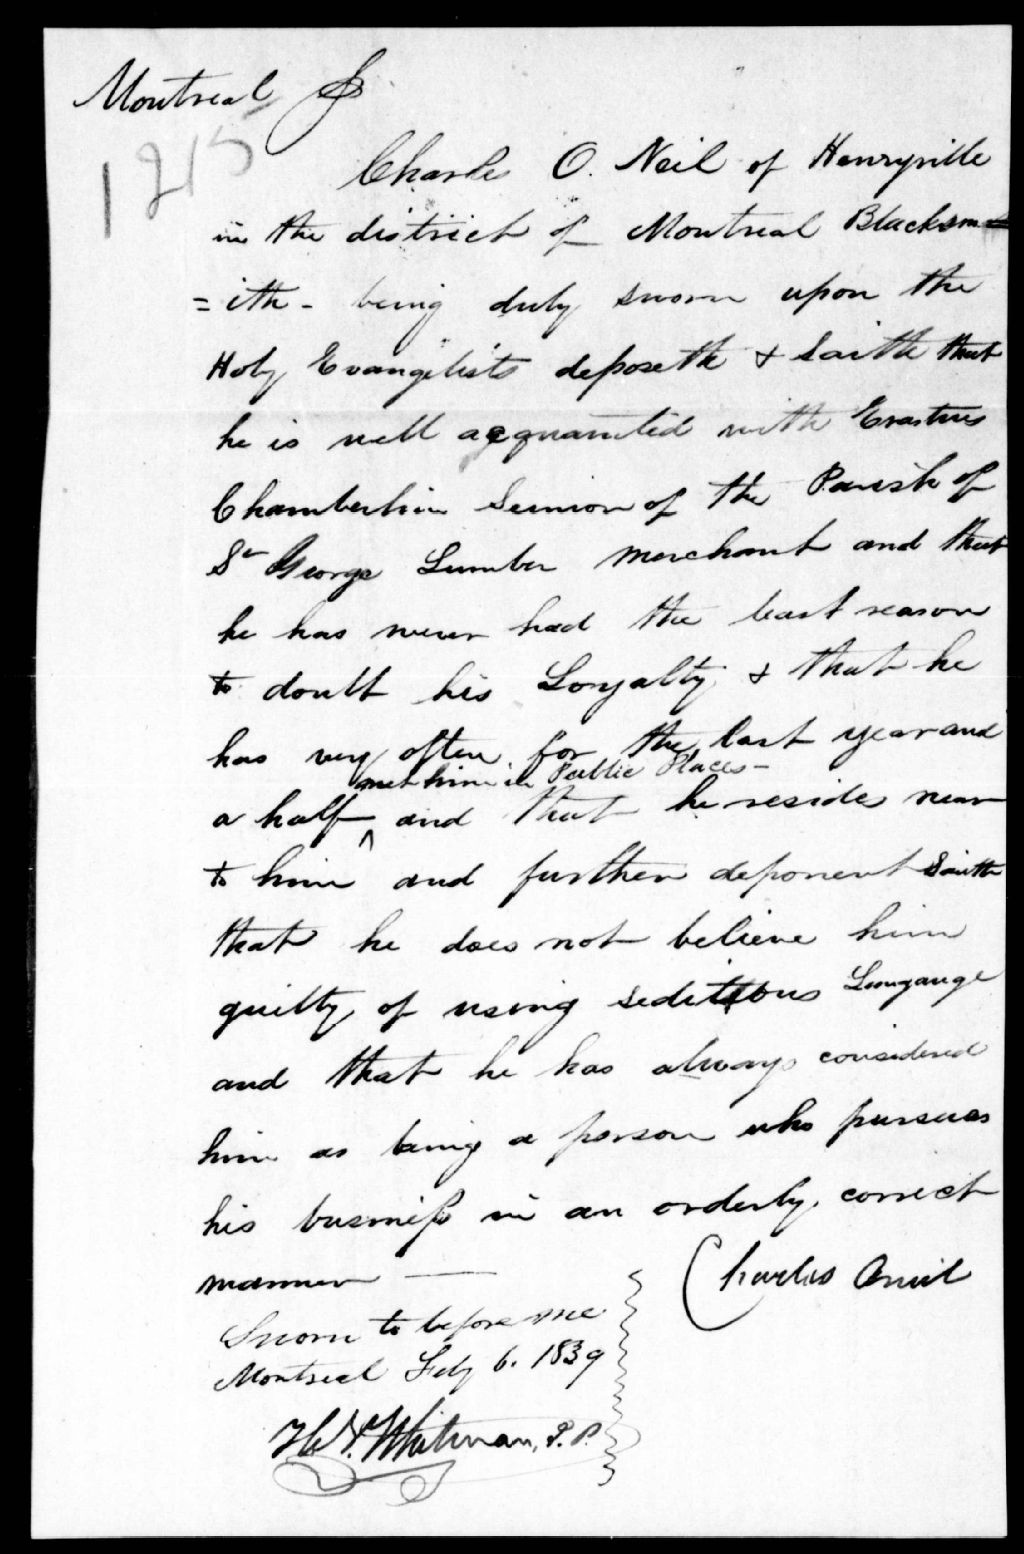 Montreal
1215
Charles O. Neil of Henryville
in the district of Montreal Blacksm=
=ith - being duly sworn upon the
Holy Evangelists deposeth & Saith that
he is well acquainted with Erastus
Chamberlin Seinior of the Parish of
St George Lumber Merchant and that
he has never had the least reason
to doubt his Loyalty & that he
has very often for the last year and
met him in Public Places -
a half ^ and that he resides near
to him and further deponent Saith
that he does not believe him
guilty of using seditious Langauge
and that he has always considered
him as being a person who pursues
his business in an orderly correct
manner —
Charles Oneil
Sworn to before me
Montreal Feby 6. 1839
Whitman, J. P.